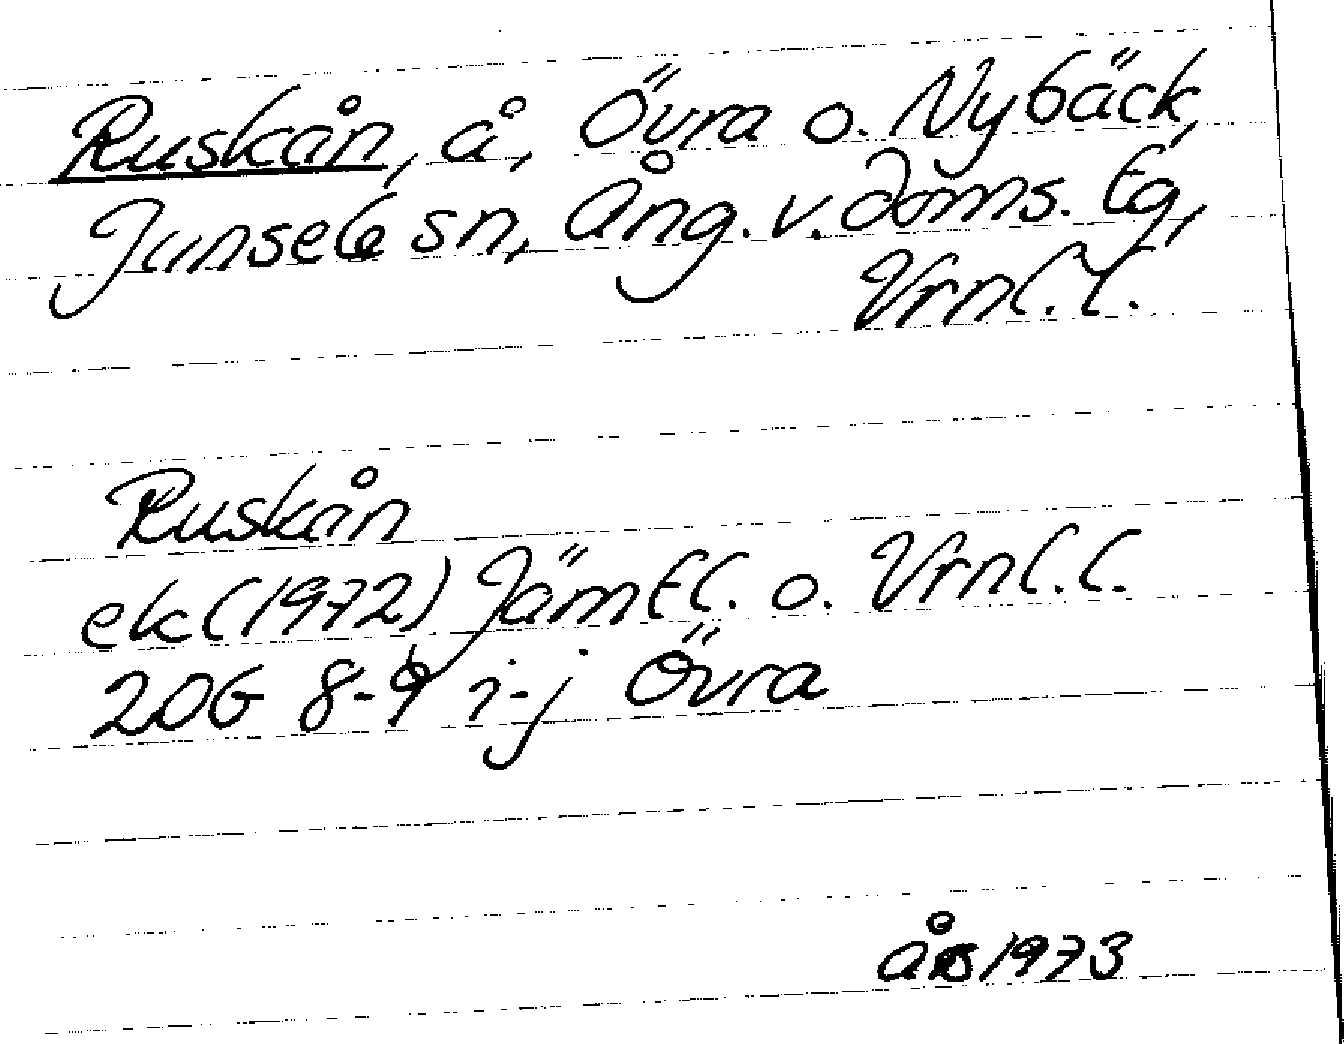 Ruskån, å, Övra o. Nybäck,
Junsele sn, Ång. v. doms. tg,
Vrnl. l.
Ruskån
ek (1972) Jämtl. o. Vrnl. l.
20G 8-9 i-j Övra
1973